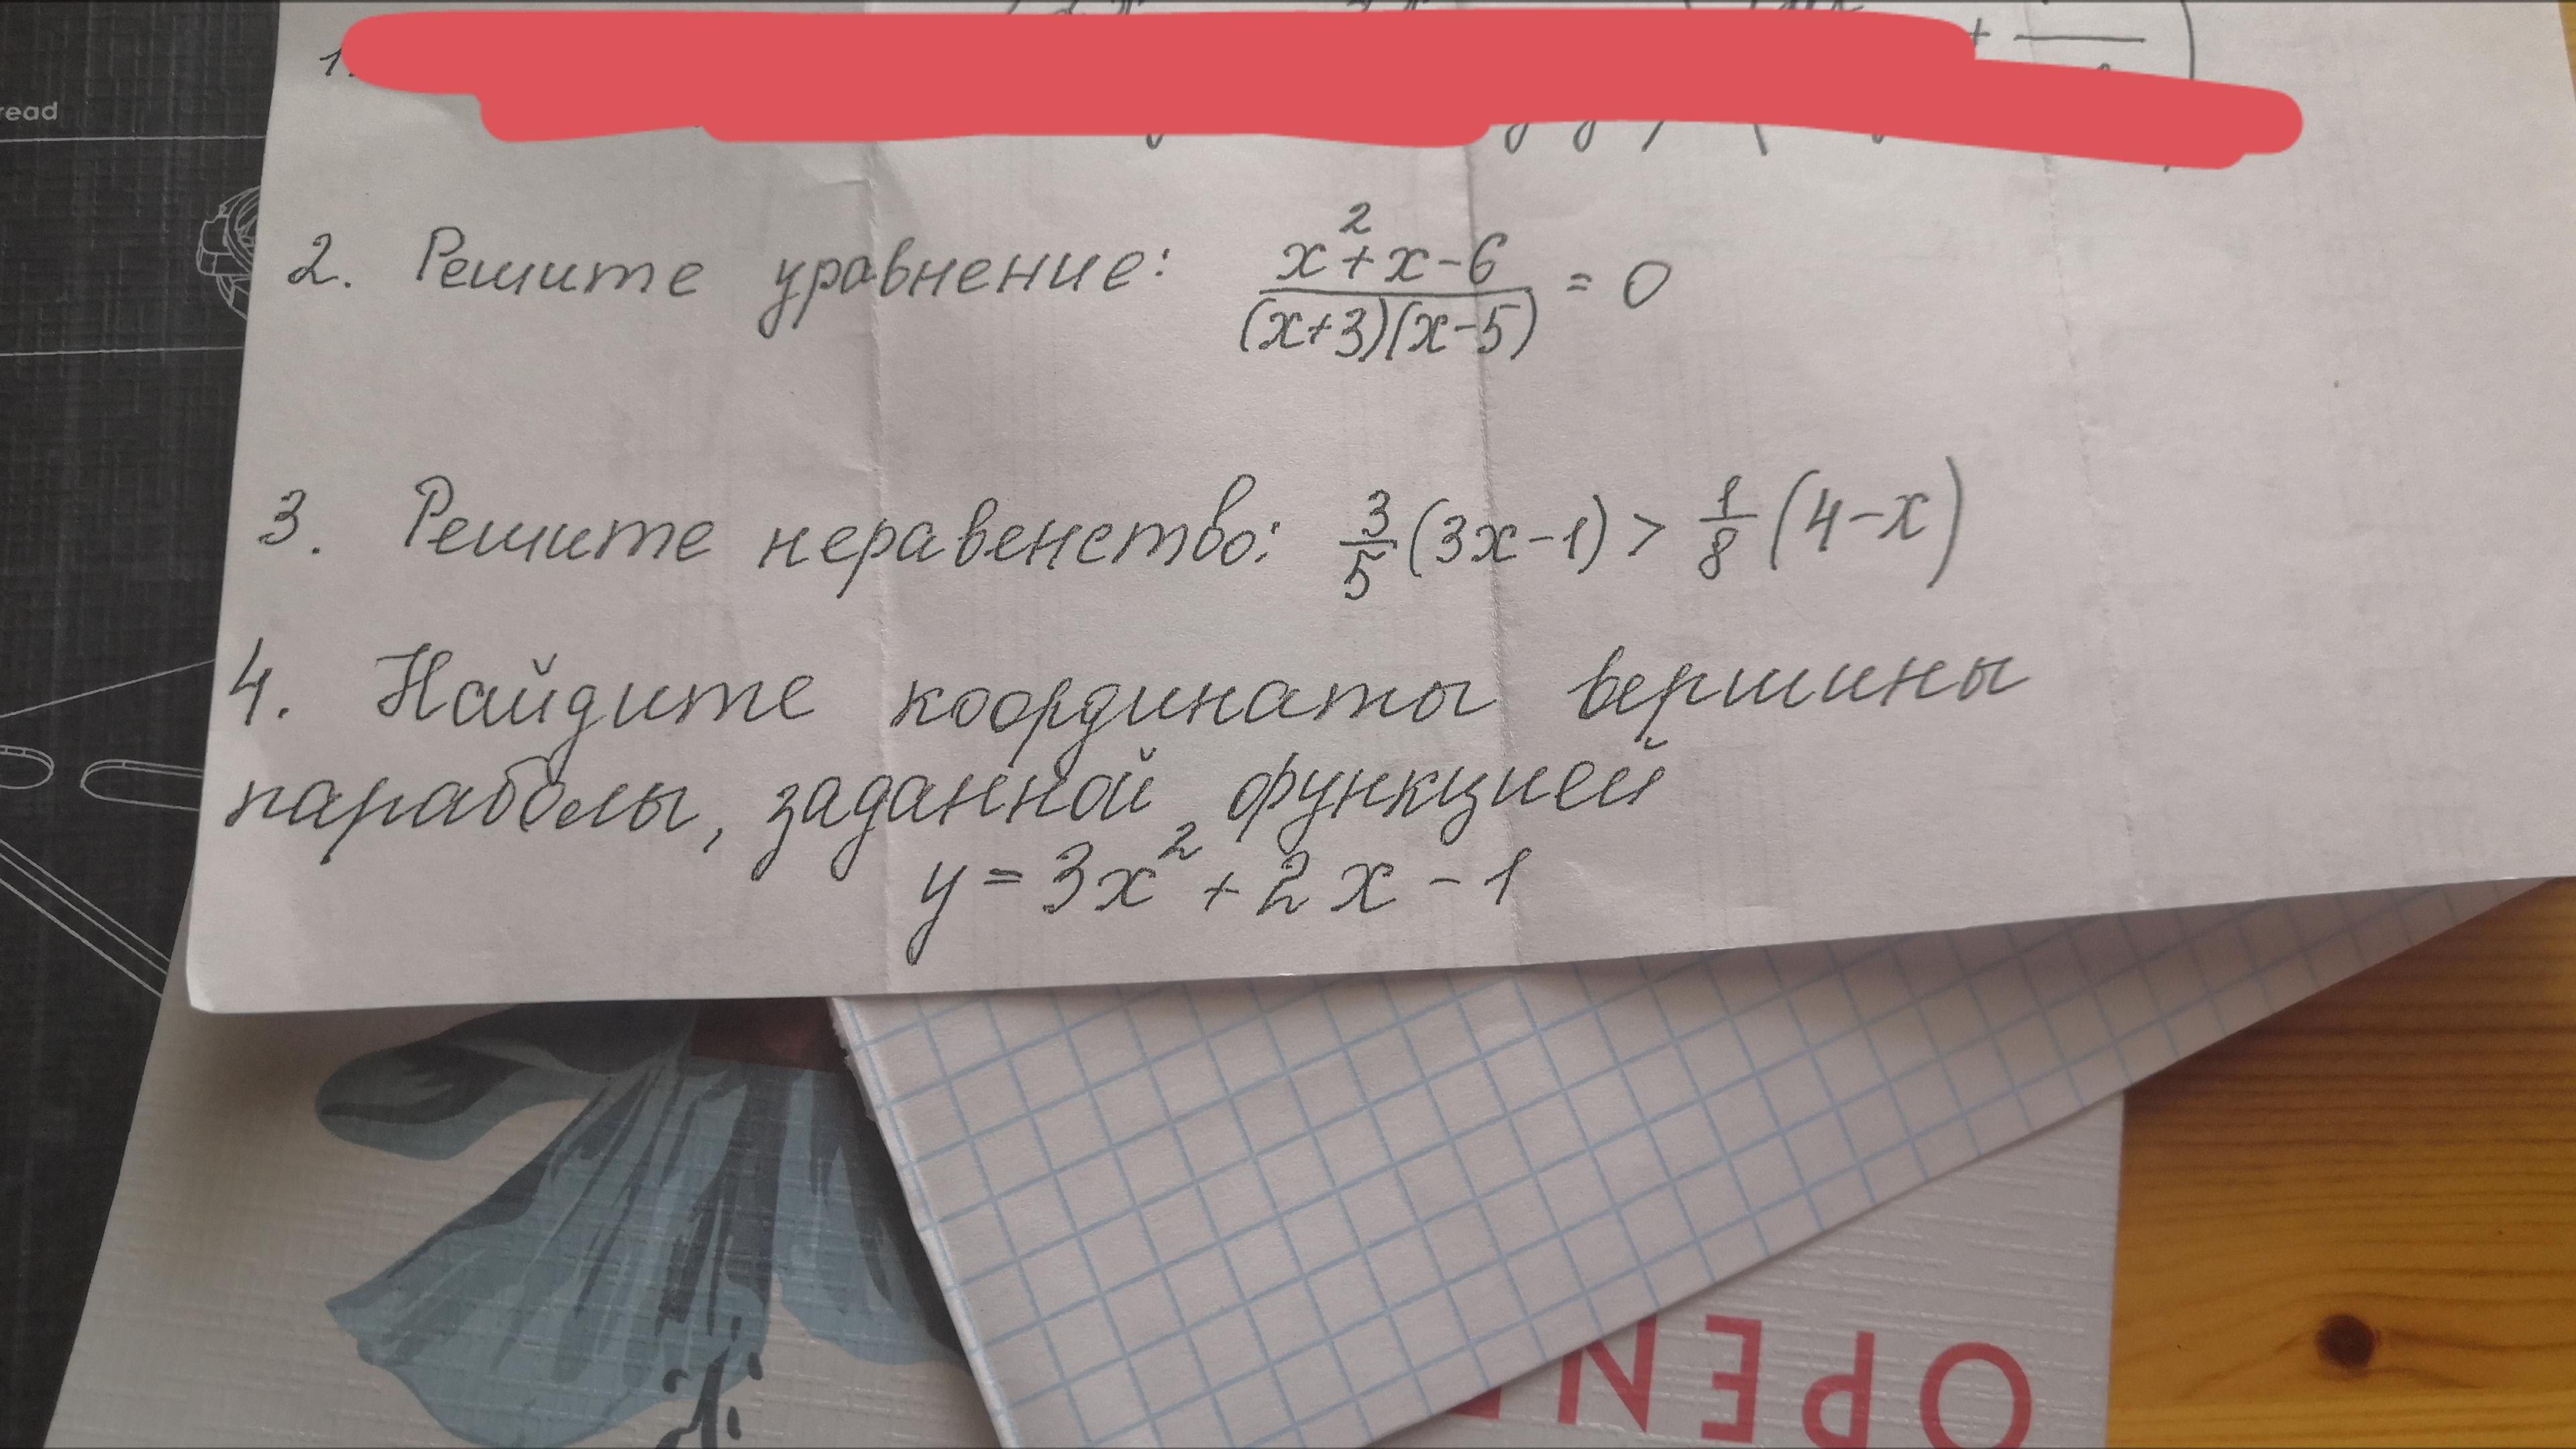 read
1.
2. Решите уравнение: (x²+x-6)/((x+3)(x-5)) = 0
3. Решите неравенство: 3/5(3x-1) > 1/8(4-x)
4. Найдите координаты вершины
параболы, заданной функцией
y = 3x² + 2x - 1
OPEN